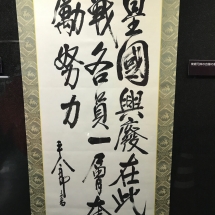 皇國興廢在此
戰各員一層奮
勵努力